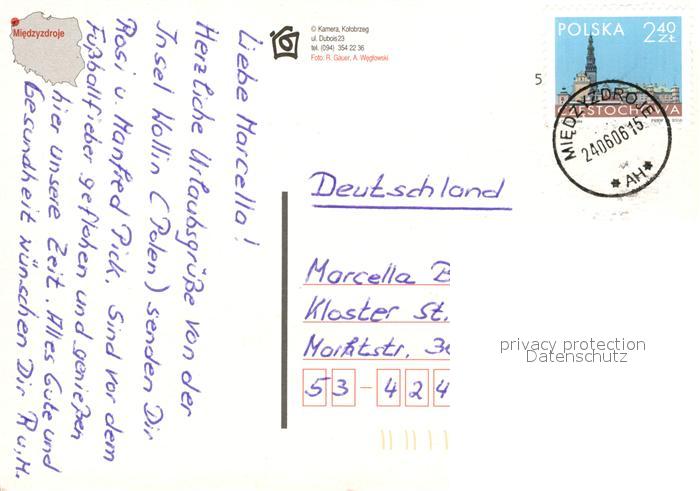 Międzyzdroje
© Kamera, Kołobrzeg
ul. Dubois 23
tel. (094) 354 22 36
Foto: R. Gauer, A. Węgłowski
POLSKA 2 40 ZŁ
5
MIĘDZYZDROJE
24060615
* AH *
Liebe Marcella!
Herzliche Urlaubsgrüße von der
Insel Wollin (Polen) senden Dir
Rosi u. Manfred Pick. Sind vor dem
Fußballfieber geflohen und genießen
hier unsere Zeit. Alles Gute und
Gesundheit wünschen Dir R u. M.
Deutschland
Marcella B
Kloster St.
Marktstr. 3
53-424
privacy protection
Datenschutz